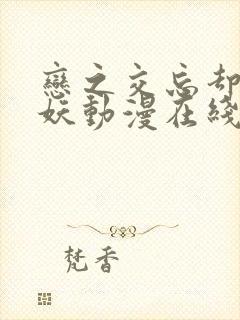 戀之交忘却
妖動漫在綫
梵香